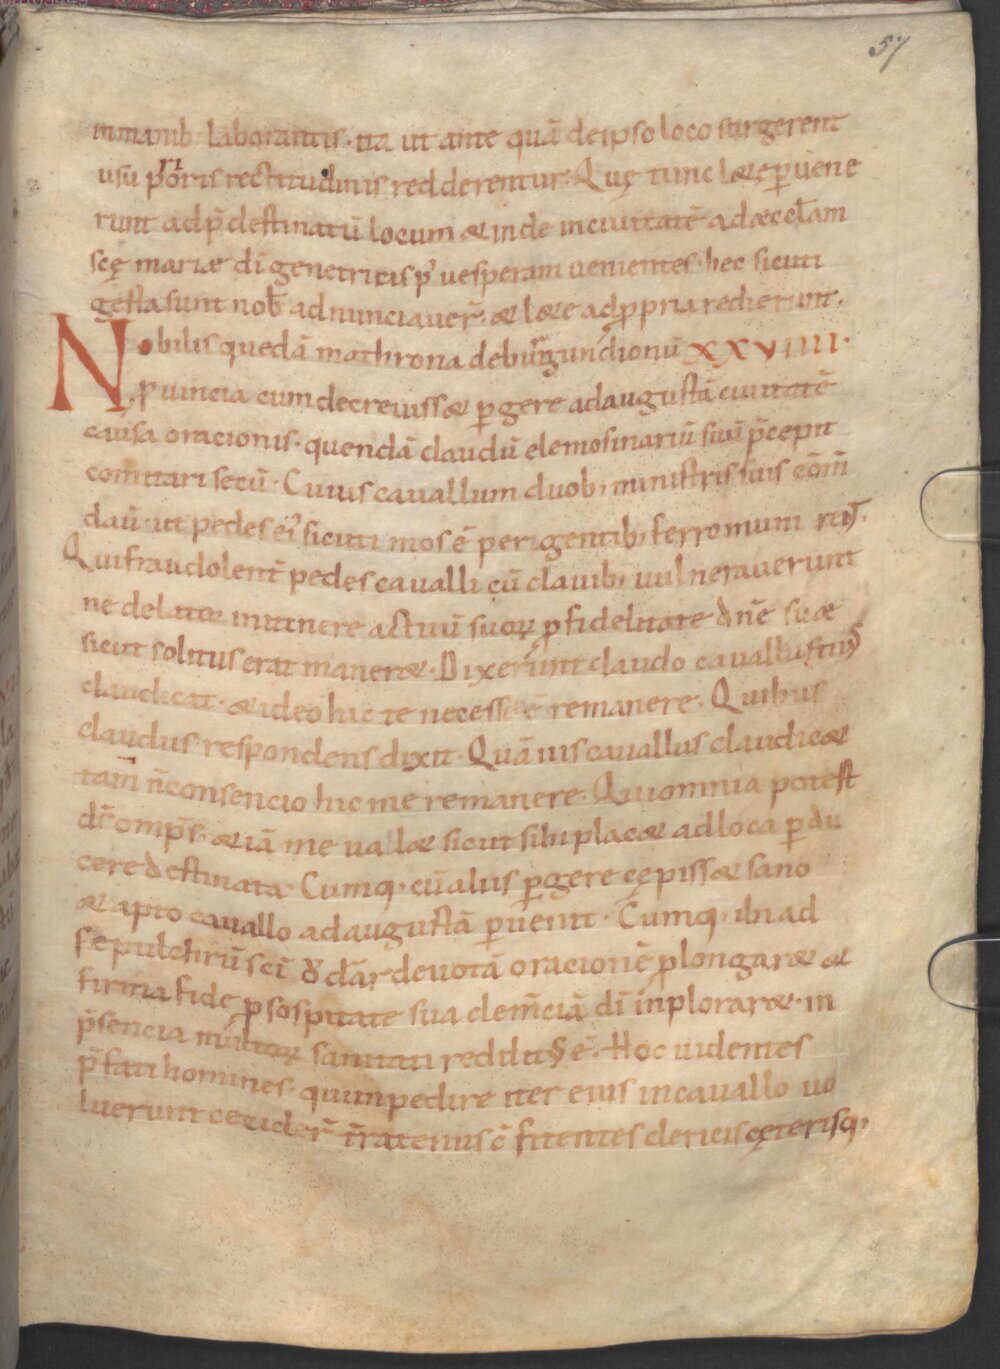 57
in manib· laborantis· ita ut ante quā de ipso loco surgerent
usū prioris rectitudinis redderentur· Quę tunc læte p̱uene
runt ad p̄destinatū locum & inde in ciuitatē ad æccl̄am
scę mariæ dī genetricis p̄ uesperam uenientes· hec sicuti
gesta sunt nob̄ adnunciauer̄· & læte ad ꝓpria redierunt·
Nobilis quedā mathrona de burgundionū XXVIIII·
ꝓuincia cum decreuiss& p̱gere ad augustā ciuitatē
causa oracionis· quendā claudū elemosinariū suū p̄cepit
comitari secū· Cuius cauallum duob; ministris suis cōm̄
dau̅· ut pedes ei͛ sicuti mos ē̄ peragentib; ferro munirent·
Qui fraudolent̄ pedes caualli cū clauib; uulnerauerunt
ne delator itinere actuū suoꝝ ꝓ fidelitate dn̄e suæ
sicut solitus erat maner&· Dixerunt claudo cauallus tuus
claudicat· & ideo hic te necesse ē̄ remanere· Quibus
claudus respondens dixit· Quāuis cauallus claudic&
tam̄ n̄ consencio hic me remanere· Qui omnia potest
ds̄ omp̄s· & iā me uall& sicut sibi plac& ad loca p̱du
cere destinata· Cumq· cū aliis p̱gere cępiss& sano
& apto cauallo ad augustā p̱uenit· Cumq· ibi ad
sepulchrū scī ơdal̄r deuotā oracionē ꝓlongar& &
firma fide ꝓ sospitate sua clem̄ciā dī inplorar&· in
p̄sencia multoꝝ sanitati redditus ē̄· Hoc uidentes
p̄fati homines· qui inpedire iter eius in cauallo uo
luerunt cecider̄ t̄ratenus cōfitentes clericis cęterisq;